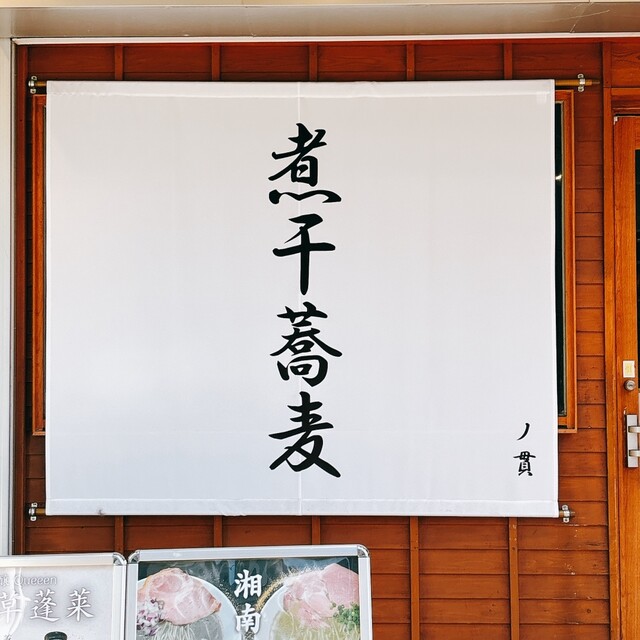 煮干蕎麦
ノ貫
Queen
草蓬莱
湘南